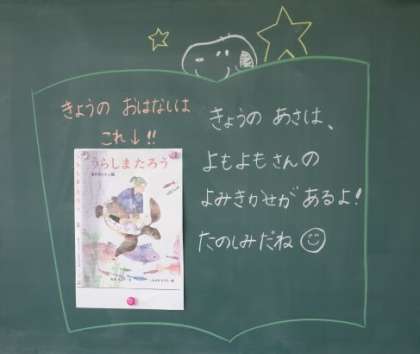 きょうの おはなしは
これ↓!!
うらしまたろう
きょうの あさは、
よもよもさんの
よみきかせが あるよ!
たのしみだね☺